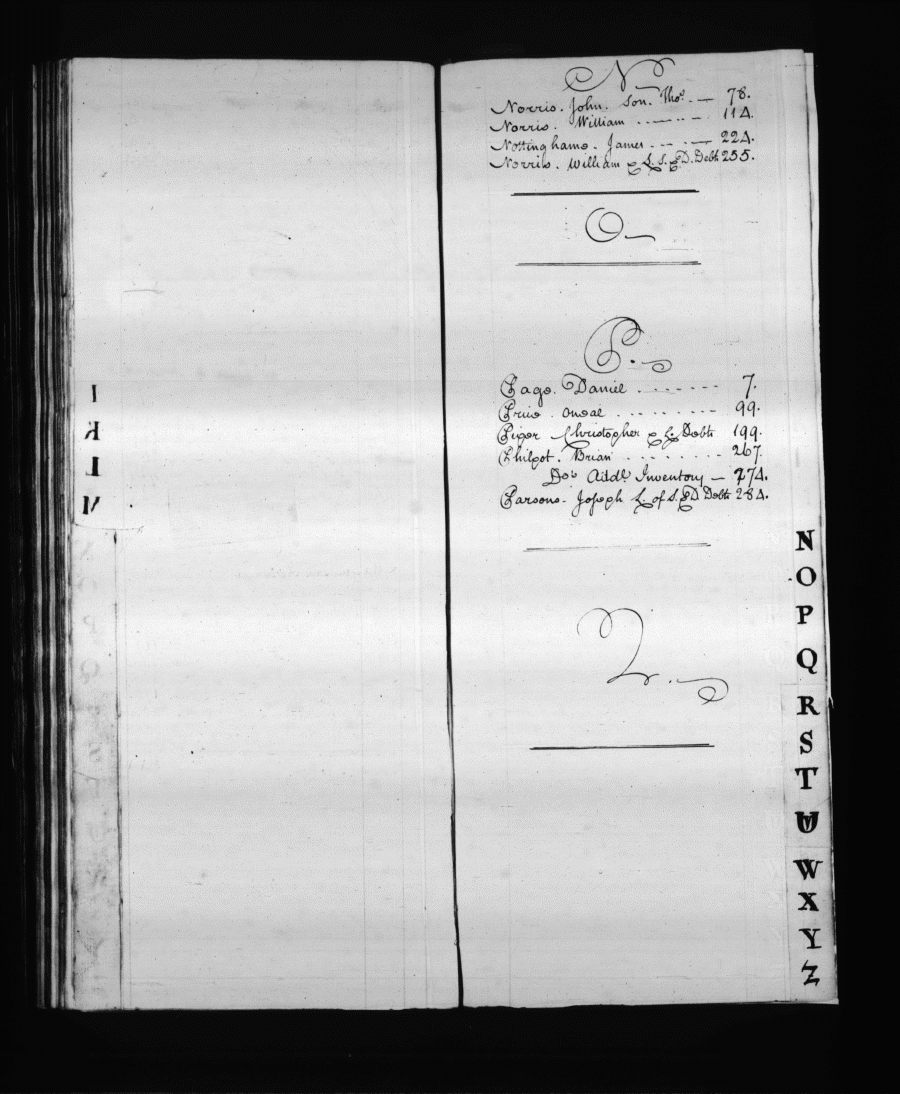 I
K
L
M
N
Norris. John. Son. Thos. — 78.
Norris. William . . . . . . 114.
Nottinghame. James . . . . — 224.
Norris. William L. S. & D. Debts 255.
O
P.
Page. Daniel . . . . . . . 7.
Price. Oneal . . . . . . . . . 99.
Piper Christopher L. Debts 199.
Philpot. Brian . . . . . . . . 267.
Do. Addl. Inventory — 274.
Parsons. Joseph L. of S. & D Debts 284.
Q.
N
O
P
Q
R
S
T
U
W
X
Y
Z